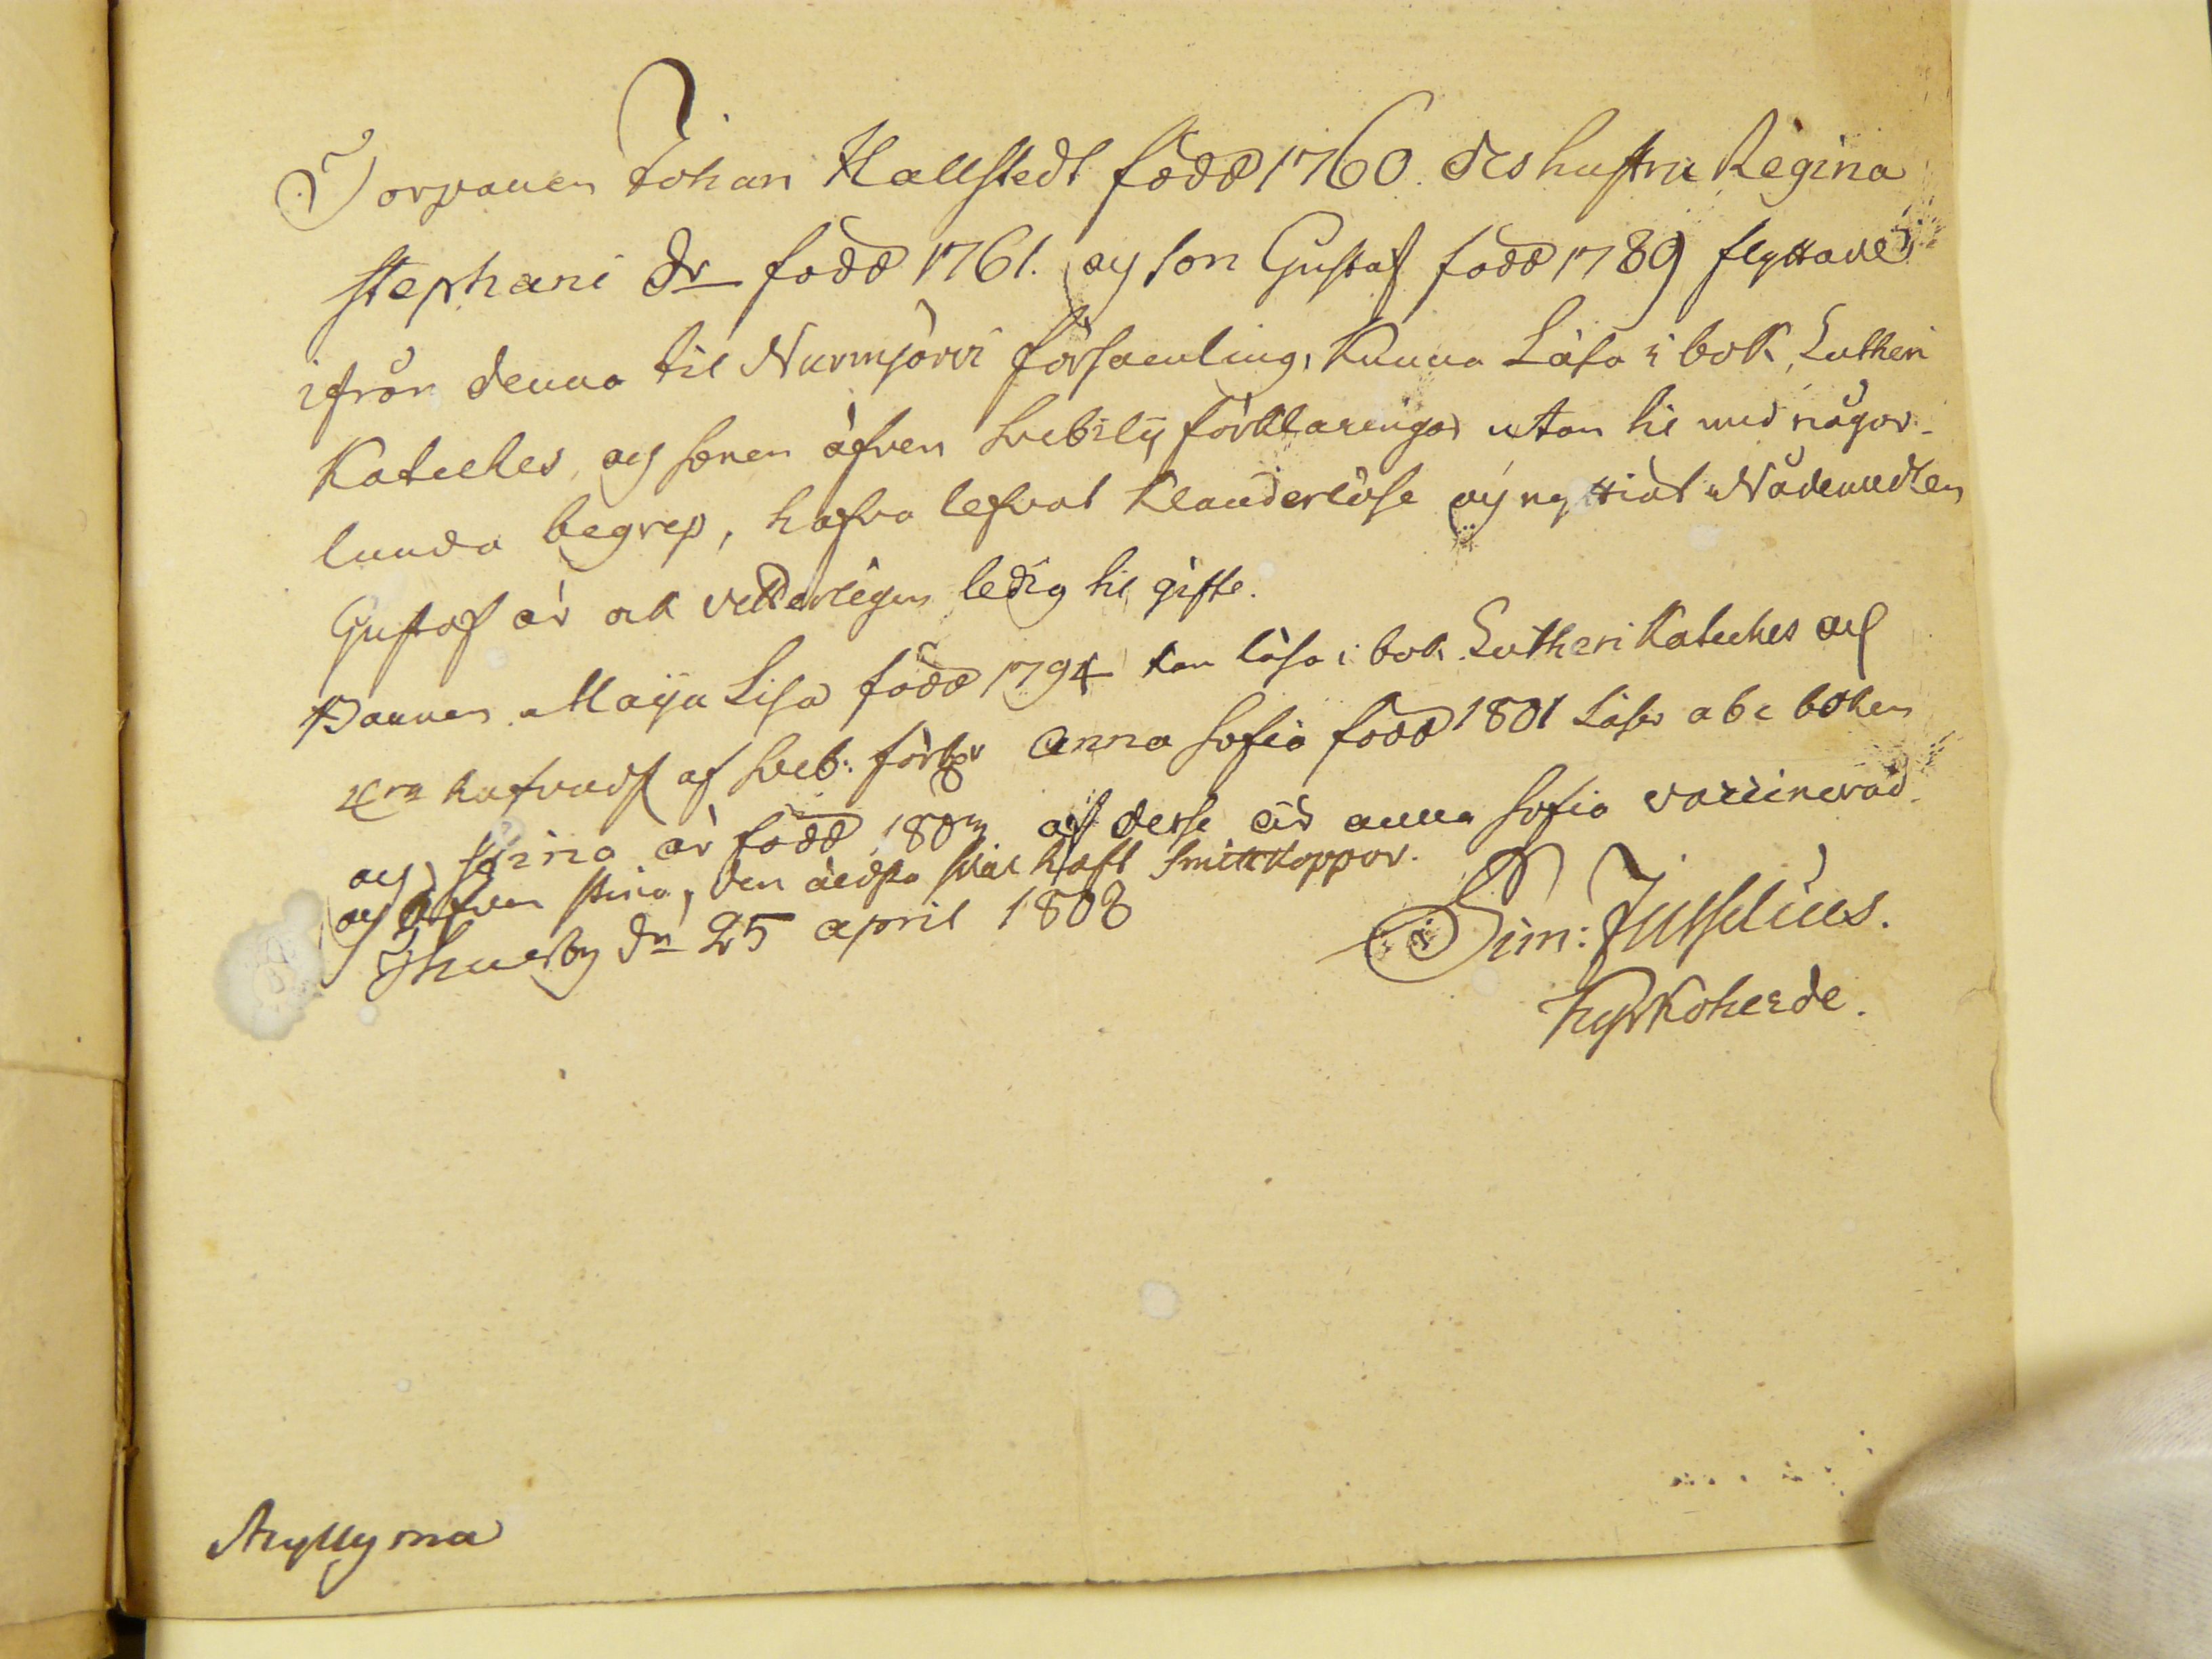 Torparen Johan Hallstedt född 1760. des hustru Regina
Stephani dr född 1761. oc son Gustaf född 1789 flyttade
ifrån denna til Nurmjärvi församling, kunna läsa i bok, Lutheri
Kateches, oc sonen äfven Svebilij förklaringar utan til med någor-
lunda begrep, hafva lefvat klanderlöse oc nyttiat Nådemedlen
Gustaf är ock vetterligen ledig til gifte.
Barnen Maija Lisa född 1794 kan läsa i bok Lutheri Kateches och
hufvudst af Sveb: Anna Sofia född 1801 läser abc boken
oc Stina är född 180 af desse är anna Sofia vaccinerad
oc äfven Stina, den äldsta haft Smittkoppor.
dn 25 april 1808
Sim: Jusselius.
Kyrkoherde.
Myllyma